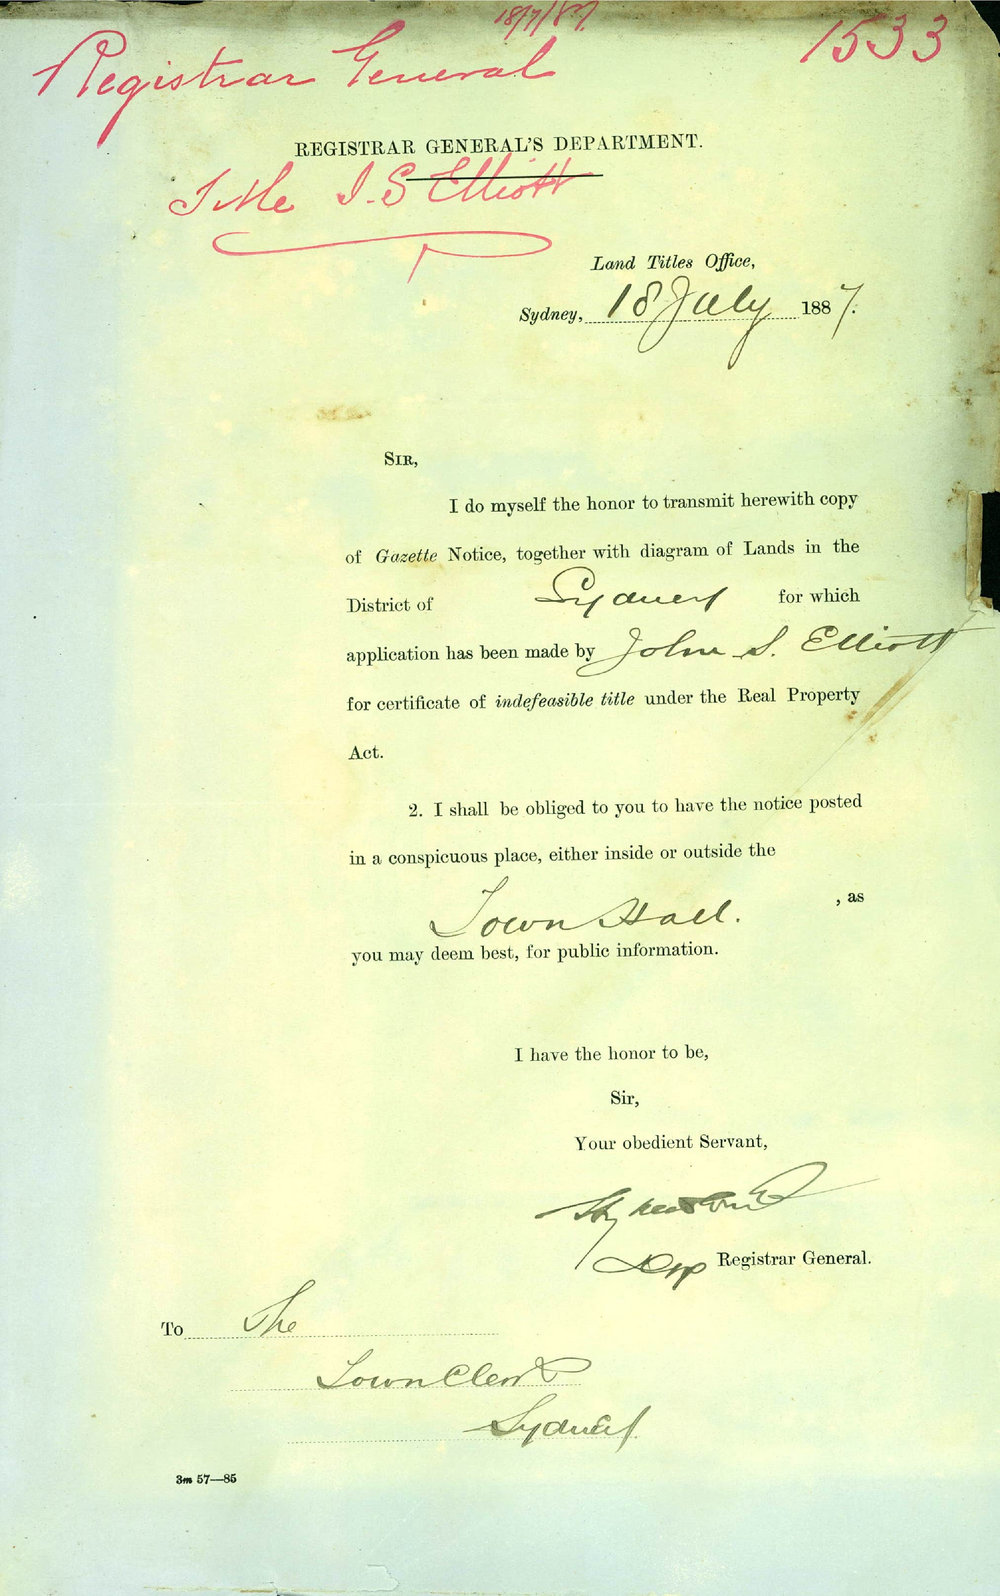 18/7/87
1533
Registrar General
REGISTRAR GENERAL'S DEPARTMENT.
Title J. S Elliott
Land Titles Office,
Sydney, 18 July 1887.
SIR,
I do myself the honor to transmit herewith copy
of Gazette Notice, together with diagram of Lands in the
District of Sydney for which
application has been made by John S. Elliott
for certificate of indefeasible title under the Real Property
Act.
2. I shall be obliged to you to have the notice posted
in a conspicuous place, either inside or outside the
Town Hall. , as
you may deem best, for public information.
I have the honor to be,
Sir,
Your obedient Servant,
Dep Registrar General.
To The
Town Clerk
Sydney.
3m 57—85